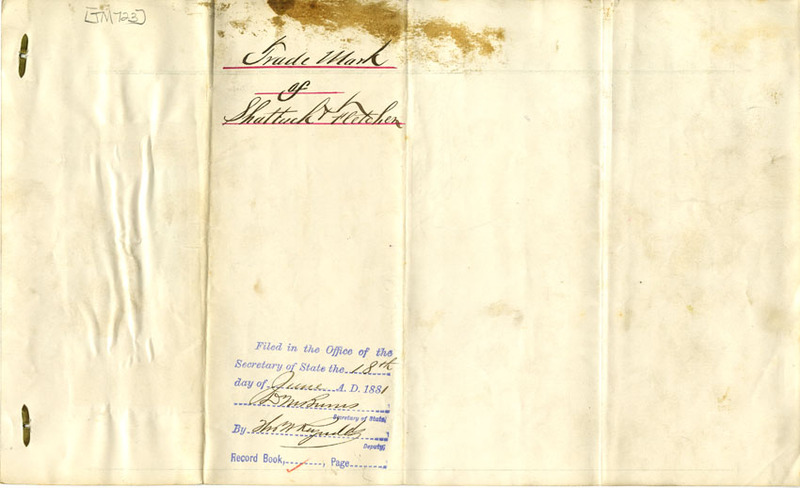 [TM723]
Trade Mark
of
Shattuck & Fletcher
Filed in the Office of the
Secretary of State the 18th
day of June A. D. 1881
D M Burns
Secretary of State,
By Thos H Reynolds
Deputy,
Record Book, , Page